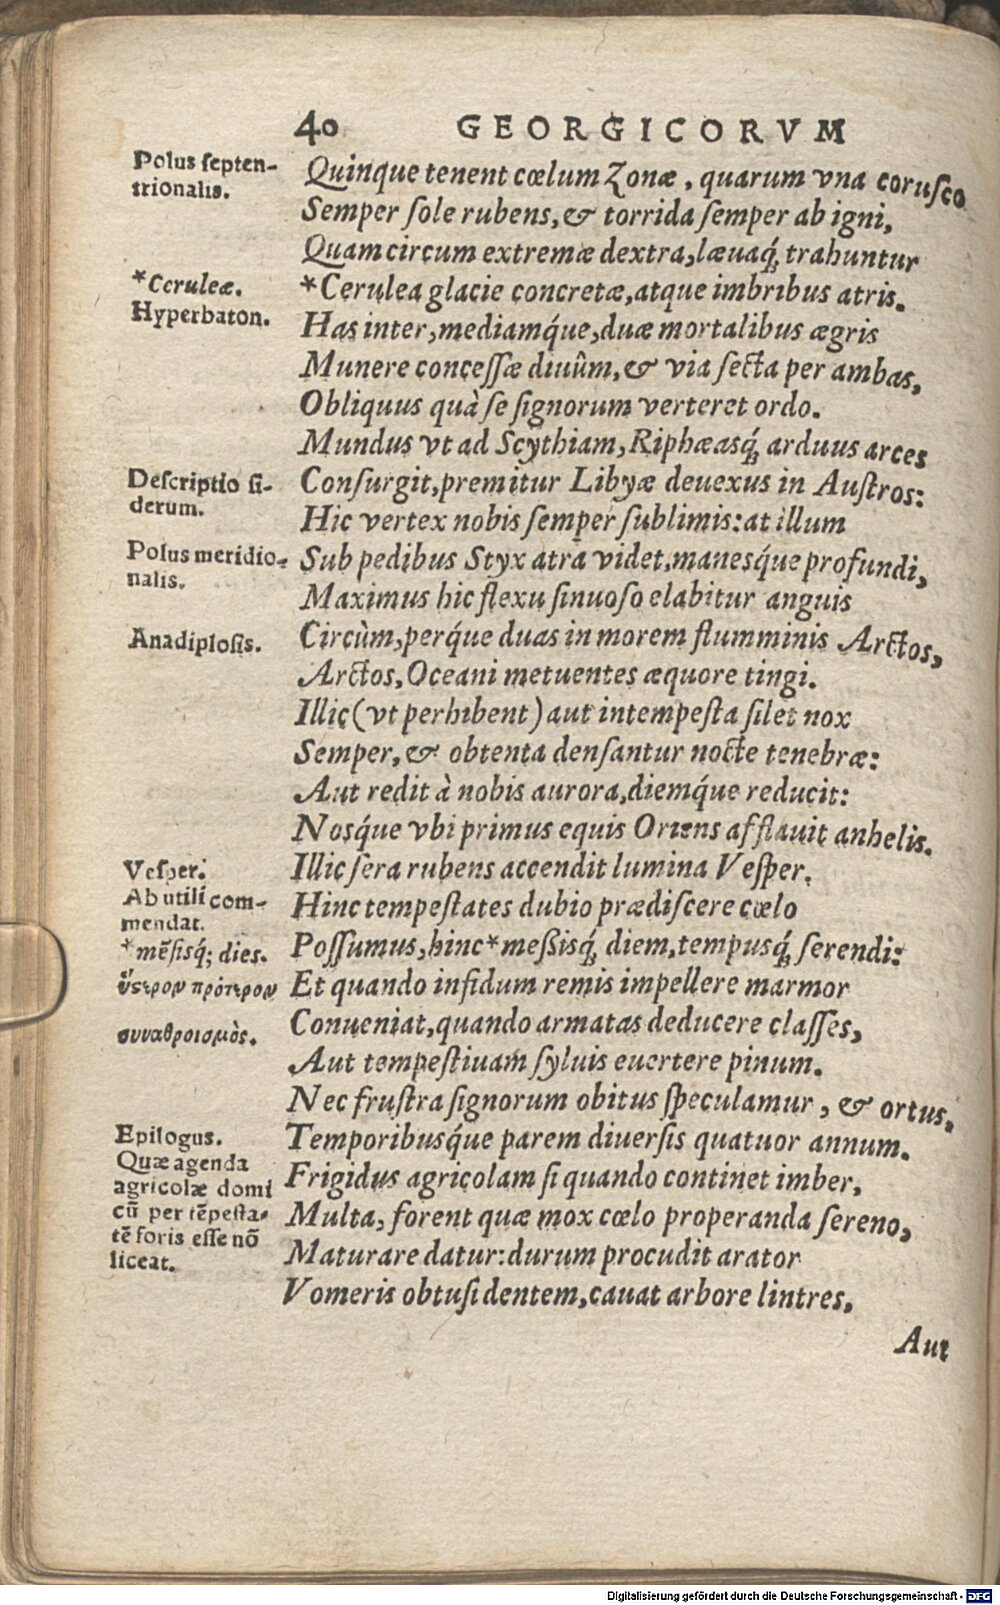 40 GEORGICORVM
Polus septen-
trionalis.
Quinque tenent cœlum Zonæ, quarum vna corusco
Semper sole rubens, & torrida semper ab igni,
Quam circum extremæ dextra, læuaq́; trahuntur
*Ceruleæ.
*Cerulea glacie concretæ, atque imbribus atris.
Hyperbaton.
Has inter, mediamq́ue, duæ mortalibus ægris
Munere concessæ diuûm, & via secta per ambas,
Obliquus quà se signorum verteret ordo.
Mundus vt ad Scythiam, Riphæasq́; arduus arces
Descriptio si-
derum.
Consurgit, premitur Libyæ deuexus in Austros:
Hic vertex nobis semper sublimis: at illum
Polus meridio-
nalis.
Sub pedibus Styx atra videt, manesq́ue profundi,
Maximus hic flexu sinuoso elabitur anguis
Anadiplosis.
Circùm, perq́ue duas in morem flumminis Arctos,
Arctos, Oceani metuentes æquore tingi.
Illic (vt perhibent) aut intempesta silet nox
Semper, & obtenta densantur nocte tenebræ:
Aut redit à nobis aurora, diemq́ue reducit:
Nosq́ue vbi primus equis Oriens afflauit anhelis.
Vesper.
Illic sera rubens accendit lumina Vesper.
Ab utili com-
mendat.
Hinc tempestates dubio prædiscere cœlo
*mẽsisq́; dies.
Possumus, hinc *meßisq́; diem, tempusq́; serendi:
ὕστερον πρότερον
Et quando infidum remis impellere marmor
συναθροισμὸς.
Conueniat, quando armatas deducere classes,
Aut tempestiuam syluis euertere pinum.
Nec frustra signorum obitus speculamur, & ortus,
Epilogus.
Temporibusq́ue parem diuersis quatuor annum.
Quæ agenda
agricolæ domi
cũ per tẽpesta-
tẽ foris esse nõ
liceat.
Frigidus agricolam si quando continet imber,
Multa, forent quæ mox cœlo properanda sereno,
Maturare datur: durum procudit arator
Vomeris obtusi dentem, cauat arbore lintres,
Aut
Digitalisierung gefördert durch die Deutsche Forschungsgemeinschaft - DFG